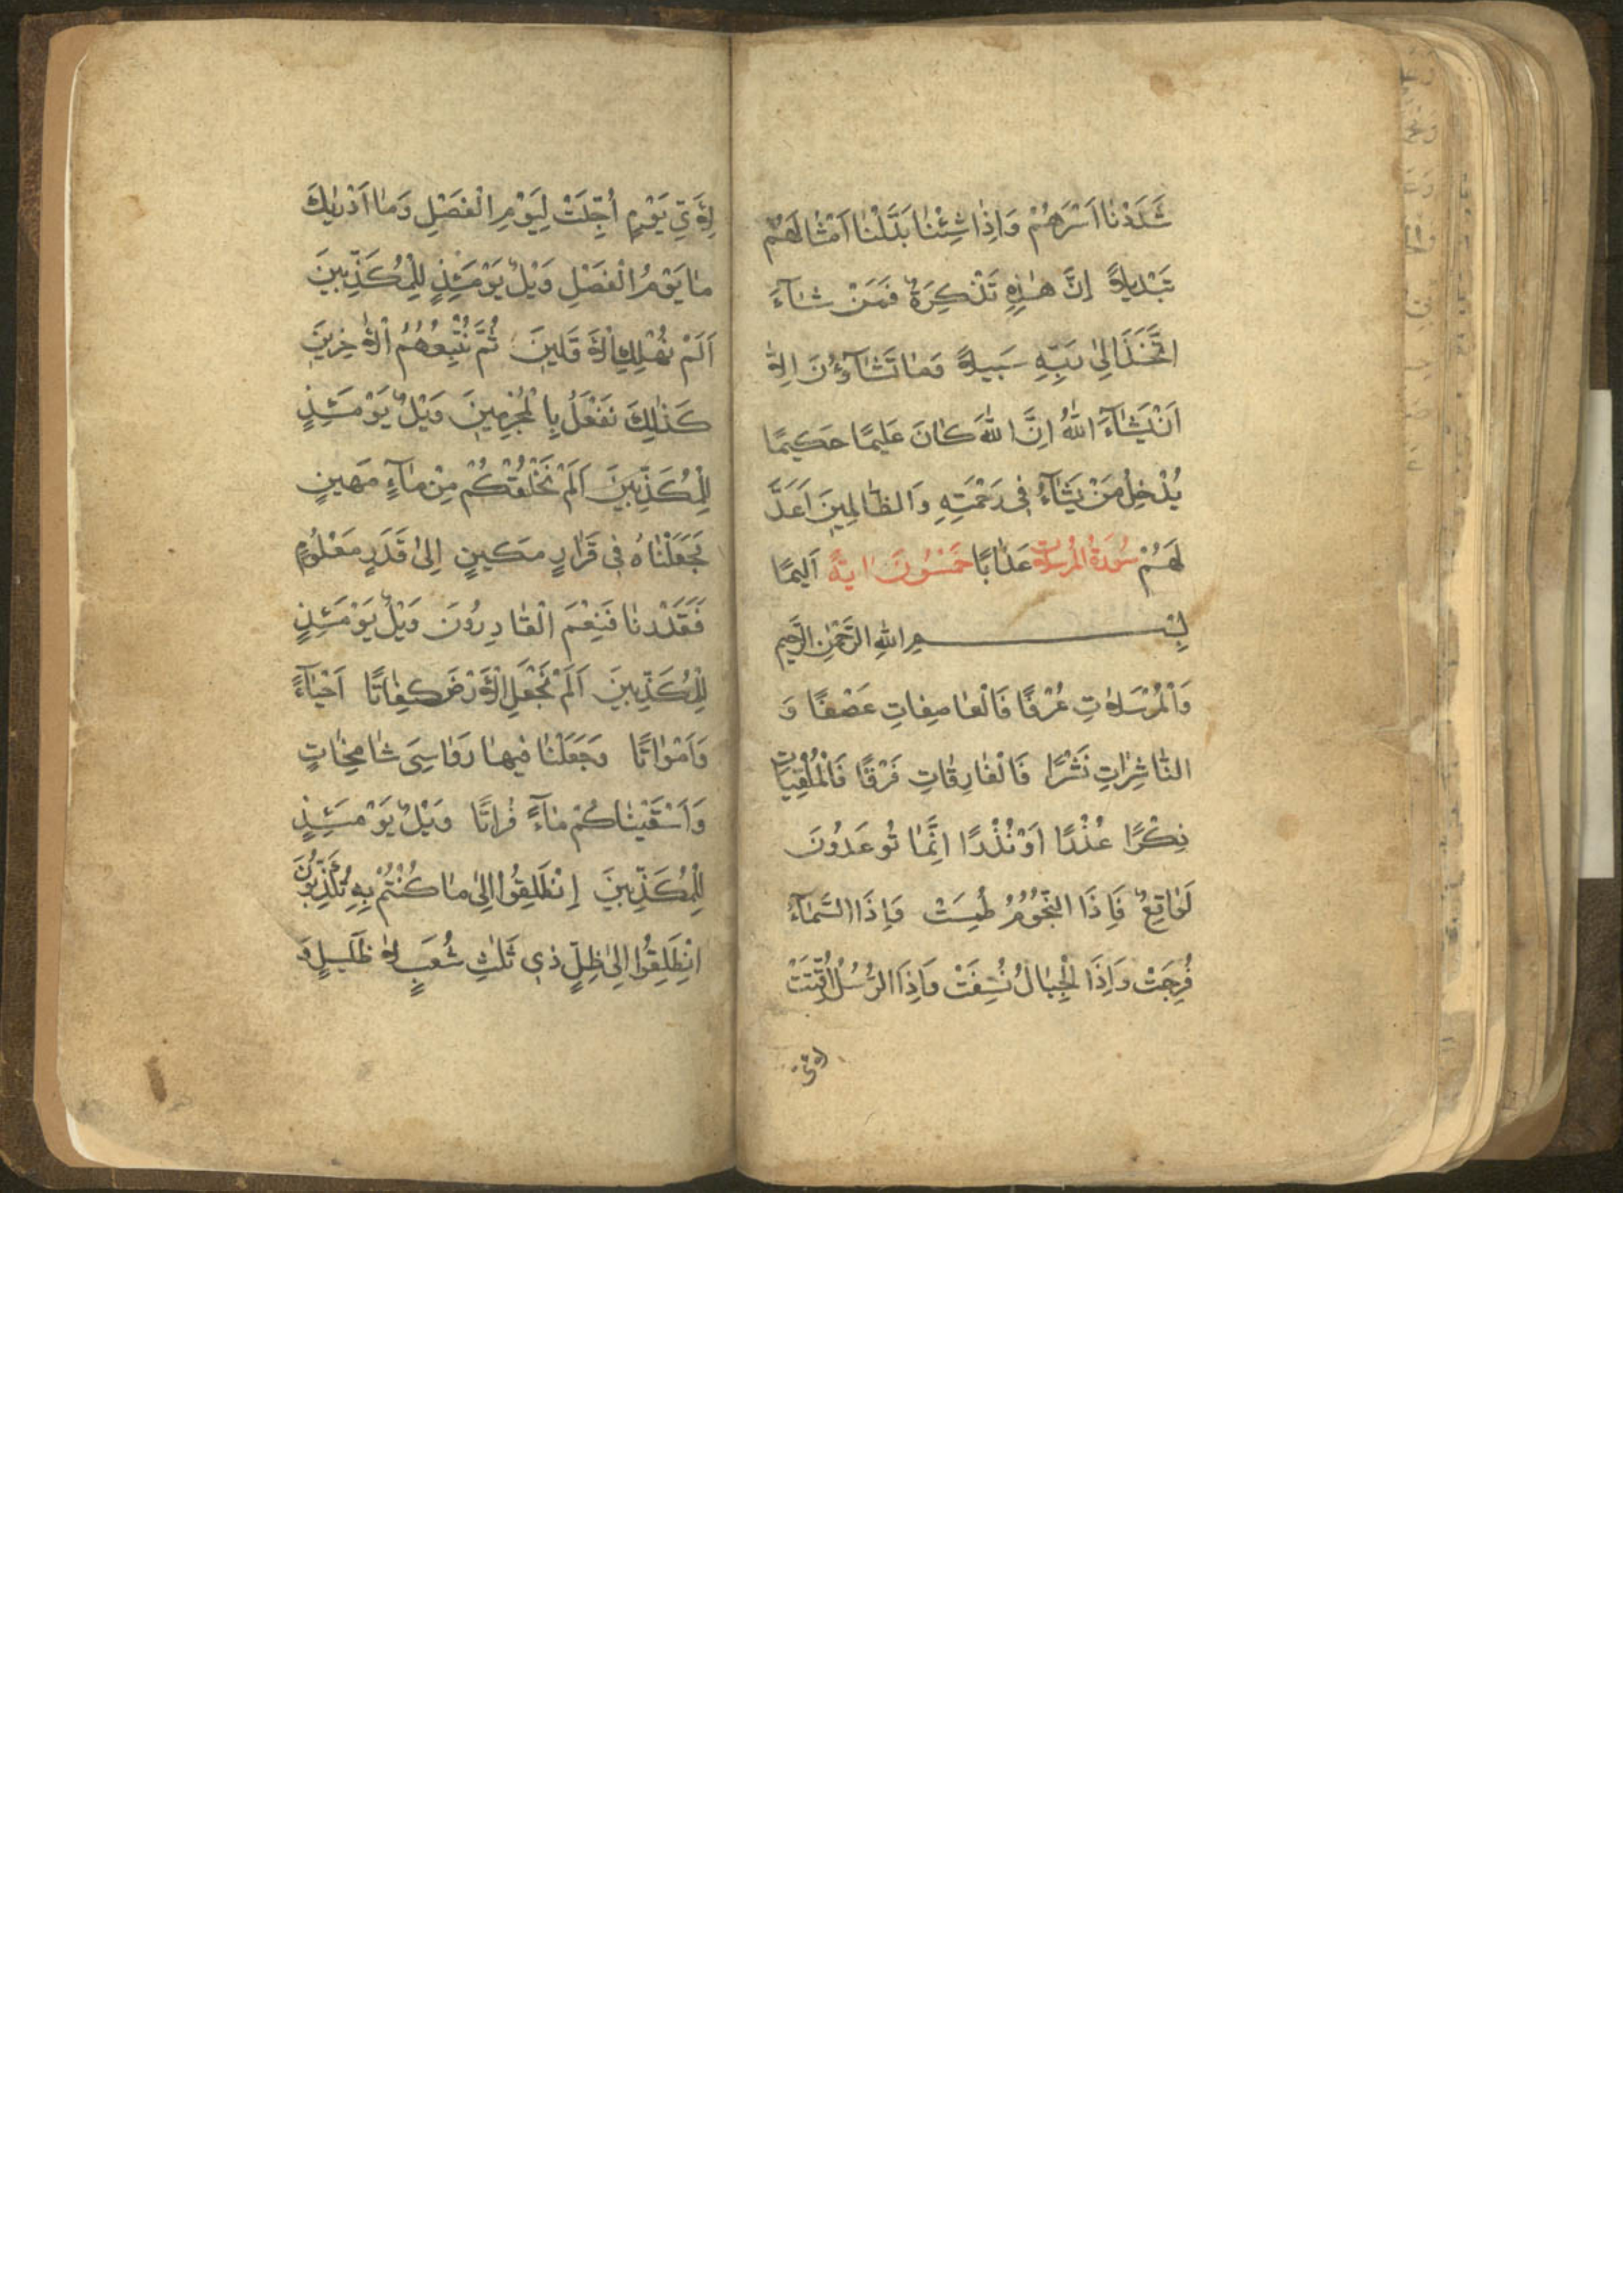 شَدَدْنَا اَسْرَهُمْ وَاِذَا شِئْنَا بَدَّلْنَا اَمْثَالَهُمْ
تَبْدِيلاً اِنَّ هٰذِهِ تَذْكِرَةٌ فَمَنْ شَآءَ
اتَّخَذَ اِلٰى رَبِّهِ سَبِيلاً وَمَا تَشَآؤُنَ اِلاَّ
اَنْ يَشَآءَ اللّٰهُ اِنَّ اللّٰهَ كَانَ عَلِيمًا حَكِيمًا
يُدْخِلُ مَنْ يَشَآءُ فِى رَحْمَتِهِ وَالظَّالِمِينَ اَعَدَّ
لَهُمْ سُورَةُ المُرسَلات عَذَابًا خَمْسُونَ ايَةً اَلِيمًا
بِسْمِ اللّٰهِ الرَّحْمٰنِ الرَّحِيمِ
وَالْمُرْسَلاَتِ عُرْفًا فَالْعَاصِفَاتِ عَصْفًا وَ
النَّاشِرَاتِ نَشْرًا فَالْفَارِقَاتِ فَرْقًا فَالْمُلْقِيَاتِ
ذِكْرًا عُذْرًا اَوْ نُذْرًا اِنَّمَا تُوعَدُونَ
لَوَاقِعٌ فَاِذَا النُّجُومُ طُمِسَتْ وَاِذَا السَّمَآءُ
فُرِجَتْ وَاِذَا الْجِبَالُ نُسِفَتْ وَاِذَا الرُّسُلُ اُقِّتَتْ
لاى
لاَِىِّ يَوْمٍ اُجِّلَتْ لِيَوْمِ الْفَصْلِ وَمَا اَدْرٰيكَ
مَا يَوْمُ الْفَصْلِ وَيْلٌ يَوْمَئِذٍ لِلْمُكَذِّبِينَ
اَلَمْ نُهْلِكِ الاَوَّلِينَ ثُمَّ نُتْبِعُهُمُ الاٰخِرِينَ
كَذٰلِكَ نَفْعَلُ بِالْمُجْرِمِينَ وَيْلٌ يَوْمَئِذٍ
لِلْمُكَذِّبِينَ اَلَمْ نَخْلُقْكُمْ مِنْ مَآءٍ مَهِينٍ
فَجَعَلْنَاهُ فِى قَرَارٍ مَكِينٍ اِلٰى قَدَرٍ مَعْلُومٍ
فَقَدَرْنَا فَنِعْمَ الْقَادِرُونَ وَيْلٌ يَوْمَئِذٍ
لِلْمُكَذِّبِينَ اَلَمْ نَجْعَلِ الاَرْضَ كِفَاتًا اَحْيَآءً
وَاَمْوَاتًا وَجَعَلْنَا فِيهَا رَوَاسِىَ شَامِخَاتٍ
وَاَسْقَيْنَاكُمْ مَآءً فُرَاتًا وَيْلٌ يَوْمَئِذٍ
لِلْمُكَذِّبِينَ اِنْطَلِقُوا اِلٰى مَا كُنْتُمْ بِهِ تُكَذِّبُونَ
اِنْطَلِقُوا اِلٰى ظِلٍّ ذِى ثَلٰثِ شُعَبٍ لاَ ظَلِيلٍ وَ